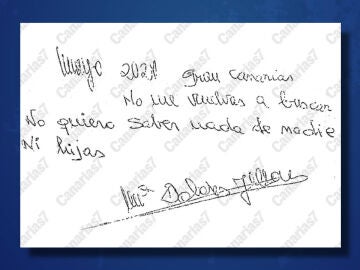 Mayo 2021 Gran Canarias
No me vuelvas a buscar
No quiero saber nada de nadie
Ni hijas
Mª Dolores
Canarias7